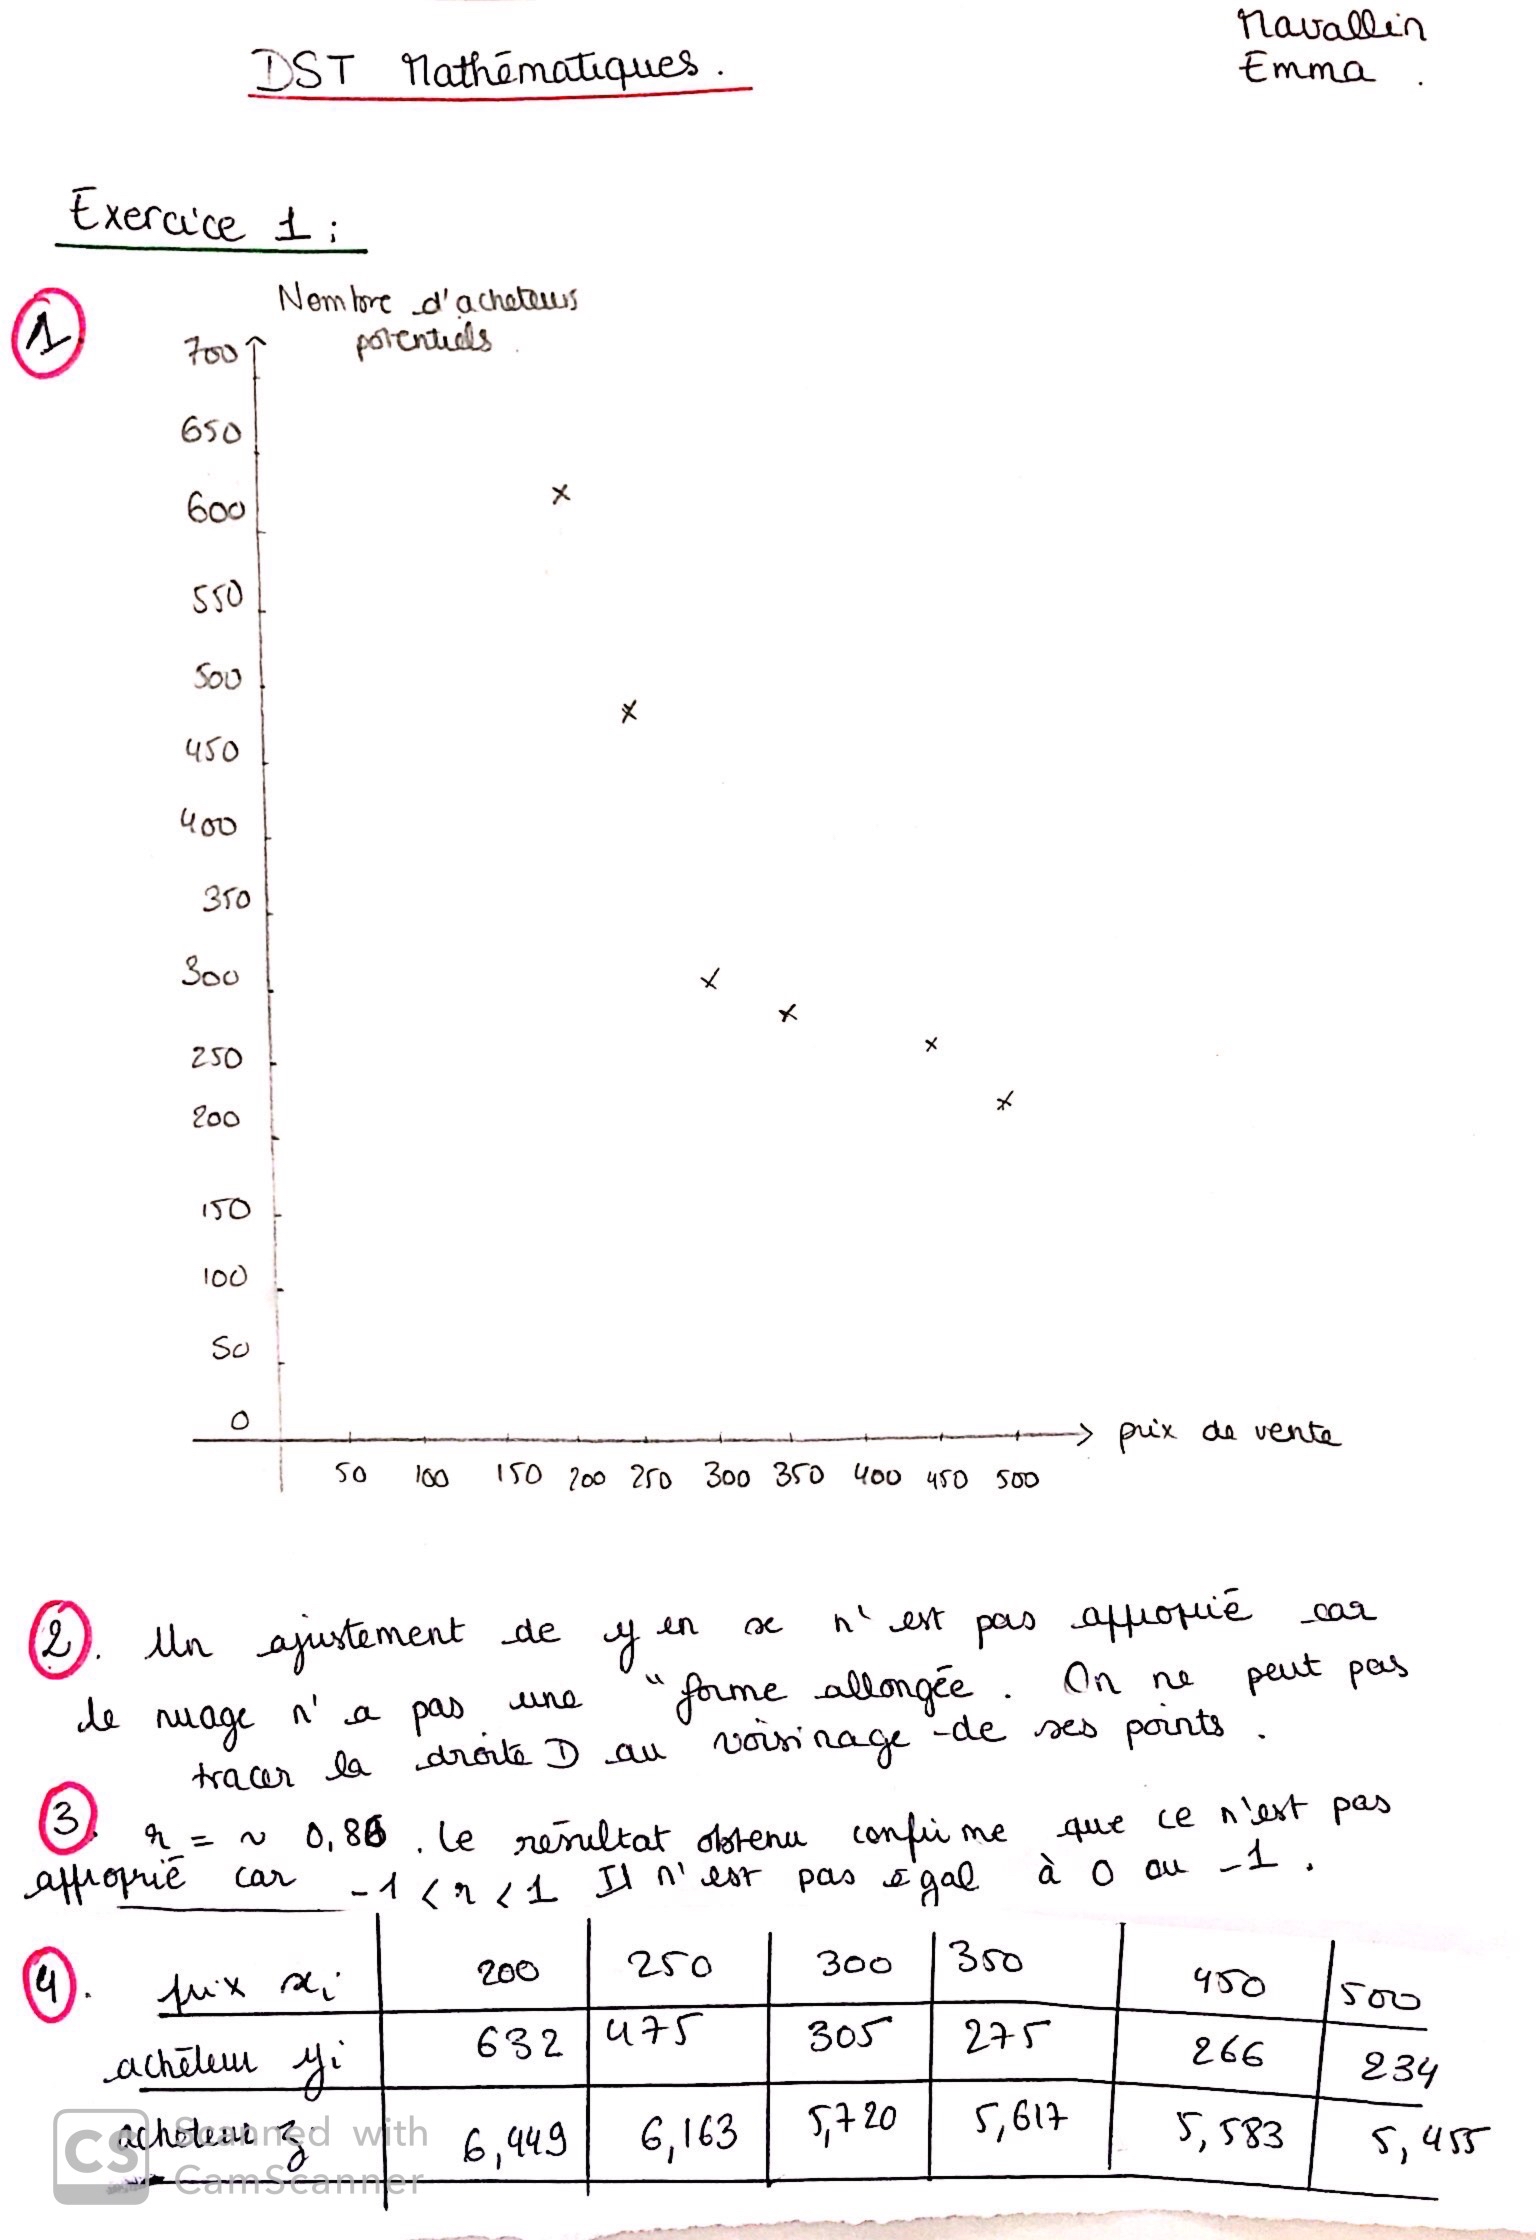 Mavallin
DST Mathématiques.
Emma.
Exercice 1 :
1
Nombre d'acheteurs
potentiels.
700
650
600
550
500
450
400
350
300
250
200
150
100
50
0
prix de vente
50 100 150 200 250 300 350 400 450 500
2. Un ajustement de y en x n'est pas approprié car
le nuage n'a pas une "forme allongée. On ne peut pas
tracer la droite D au voisinage de ses points.
3. r = ~ 0,86. Le résultat obtenu confirme que ce n'est pas
approprié car -1 < r < 1 Il n'est pas égal à 0 ou -1.
4. prix xi 200 250 300 350 450 500
achèteur yi 632 475 305 275 266 234
acheteur z 6,449 6,163 5,720 5,617 5,583 5,455
CS Scanned with
CamScanner